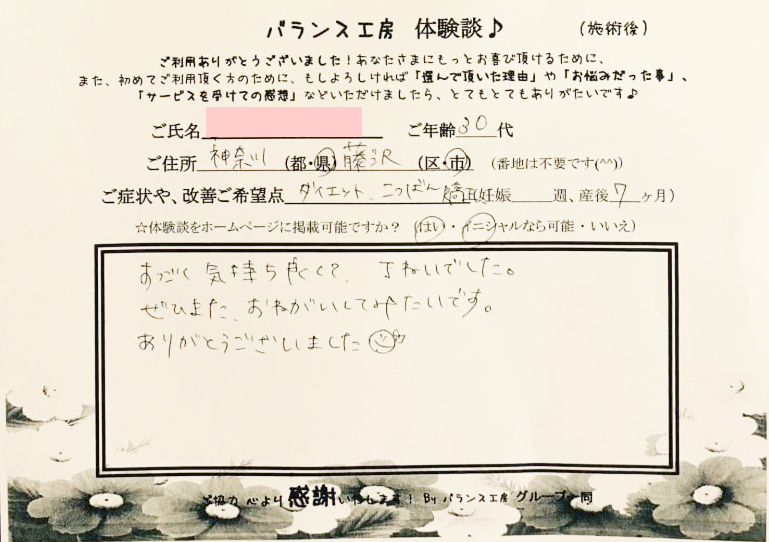 バランス工房 体験談♪ (施術後)
ご利用ありがとうございました！あなたさまにもっとお喜び頂けるために、
また、初めてご利用頂く方のために、もしよろしければ「選んで頂いた理由」や「お悩みだった事」、
「サービスを受けての感想」などいただけましたら、とてもとてもありがたいです♪
ご氏名 ご年齢 30 代
ご住所 神奈川 (都・県) 藤沢 (区・市) (番地は不要です(^^))
ご症状や、改善ご希望点 ダイエット、こつばん矯正(妊娠 週、産後 7 ヶ月)
☆体験談をホームページに掲載可能ですか？ (はい・イニシャルなら可能・いいえ)
すっごく気持ち良くて、丁ねいでした。
ぜひまた、おねがいしてみたいです。
ありがとうございました
ご協力 心より感謝いたします！ By バランス工房 グループ一同